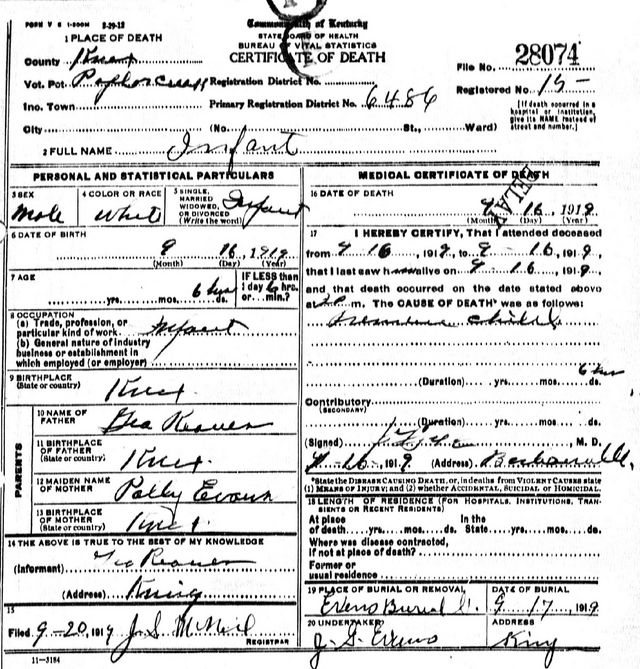 FORM V S 1-500M 3-29-12
Commonwealth of Kentucky
STATE BOARD OF HEALTH
BUREAU OF VITAL STATISTICS
CERTIFICATE OF DEATH
1 PLACE OF DEATH
County Knox
File No. 28074
Vot. Pct. Registration District No.
Registered No. 15-
Inc. Town Primary Registration District No. 6486
[If death occurred in a hospital or institution, give its NAME instead of street and number.]
City (No. St., Ward)
2 FULL NAME Infant
PERSONAL AND STATISTICAL PARTICULARS
3 SEX
Male
4 COLOR OR RACE
White
5 SINGLE, MARRIED WIDOWED, OR DIVORCED (Write the word)
Infant
6 DATE OF BIRTH
9 16, 1919
(Month) (Day) (Year)
7 AGE
yrs. mos. 6 hrs ds.
IF LESS than 1 day 6 hrs. or min.?
8 OCCUPATION
(a) Trade, profession, or particular kind of work Infant
(b) General nature of industry business or establishment in which employed (or employer)
9 BIRTHPLACE
(State or country) Knox
PARENTS
10 NAME OF FATHER Geo Reaves
11 BIRTHPLACE OF FATHER
(State or country) Knox
12 MAIDEN NAME OF MOTHER Polly Evans
13 BIRTHPLACE OF MOTHER
(State or country) Knox
14 THE ABOVE IS TRUE TO THE BEST OF MY KNOWLEDGE
(Informant) Geo Reaves
(Address)
15
Filed 9-20, 1919 J. S. McNeil
REGISTRAR
11-3184
MEDICAL CERTIFICATE OF DEATH
DELAY
16 DATE OF DEATH
9 16, 1919
(Month) (Day) (Year)
17 I HEREBY CERTIFY, That I attended deceased
from 9 16, 1919, to 9 - 16, 1919,
that I last saw h alive on 9 16, 1919,
and that death occurred on the date stated above
at m. The CAUSE OF DEATH* was as follows:
child
6 hrs
(Duration) yrs. mos. ds.
Contributory
(SECONDARY)
(Duration) yrs. mos. ds.
(Signed) , M. D.
9-26-, 1919 (Address)
*State the DISEASE CAUSING DEATH, or, in deaths from VIOLENT CAUSES state (1) MEANS OF INJURY; and (2) whether ACCIDENTAL, SUICIDAL or HOMICIDAL.
18 LENGTH OF RESIDENCE (FOR HOSPITALS, INSTITUTIONS, TRANSIENTS OR RECENT RESIDENTS)
At place of death yrs. mos. ds. In the State yrs. mos. ds.
Where was disease contracted, if not at place of death?
Former or usual residence
19 PLACE OF BURIAL OR REMOVAL
Evens Burial
DATE OF BURIAL
9 17, 1919
20 UNDERTAKER
J. G. Evens
ADDRESS